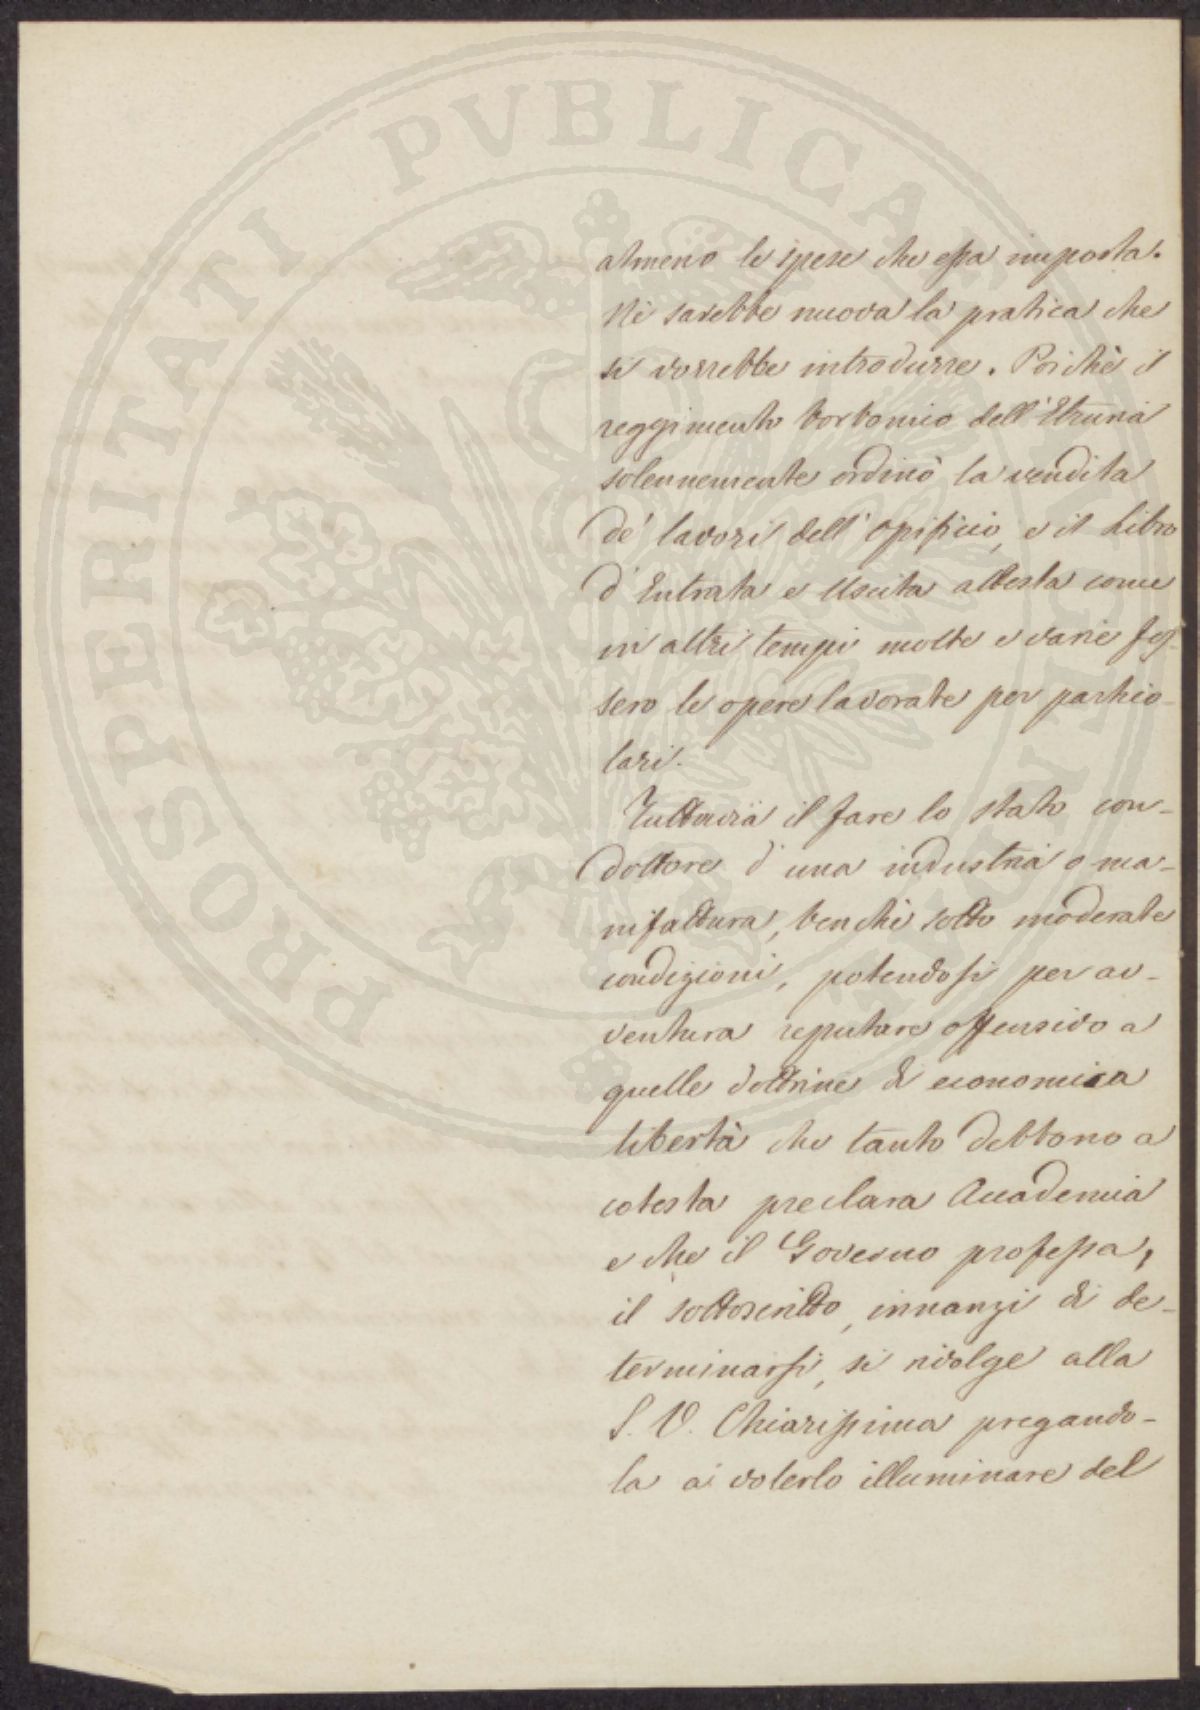 PROSPERITATI PVBLICAE AVGENDAE
almeno le spese che essa importa.
Nè sarebbe nuova la pratica che
si vorrebbe introdurre. Poichè il
reggimento borbonico dell'Etruria
solennemente ordinò la vendita
de' lavori dell'opificio, e il Libro
d'Entrata e Uscita attesta come
in altri tempi molte e varie fos-
sero le opere lavorate per partico-
lari.
Tuttavia il fare lo stato con-
duttore d'una industria o ma-
nifattura, benchè sotto moderate
condizioni, potendosi per av-
ventura reputare offensivo a
quelle dottrine di economica
libertà che tanto debbono a
cotesta preclara Accademia
e che il Governo professa,
il sottoscritto, innanzi di de-
terminarsi, si rivolge alla
S. V. Chiarissima pregando-
la a volerlo illuminare del